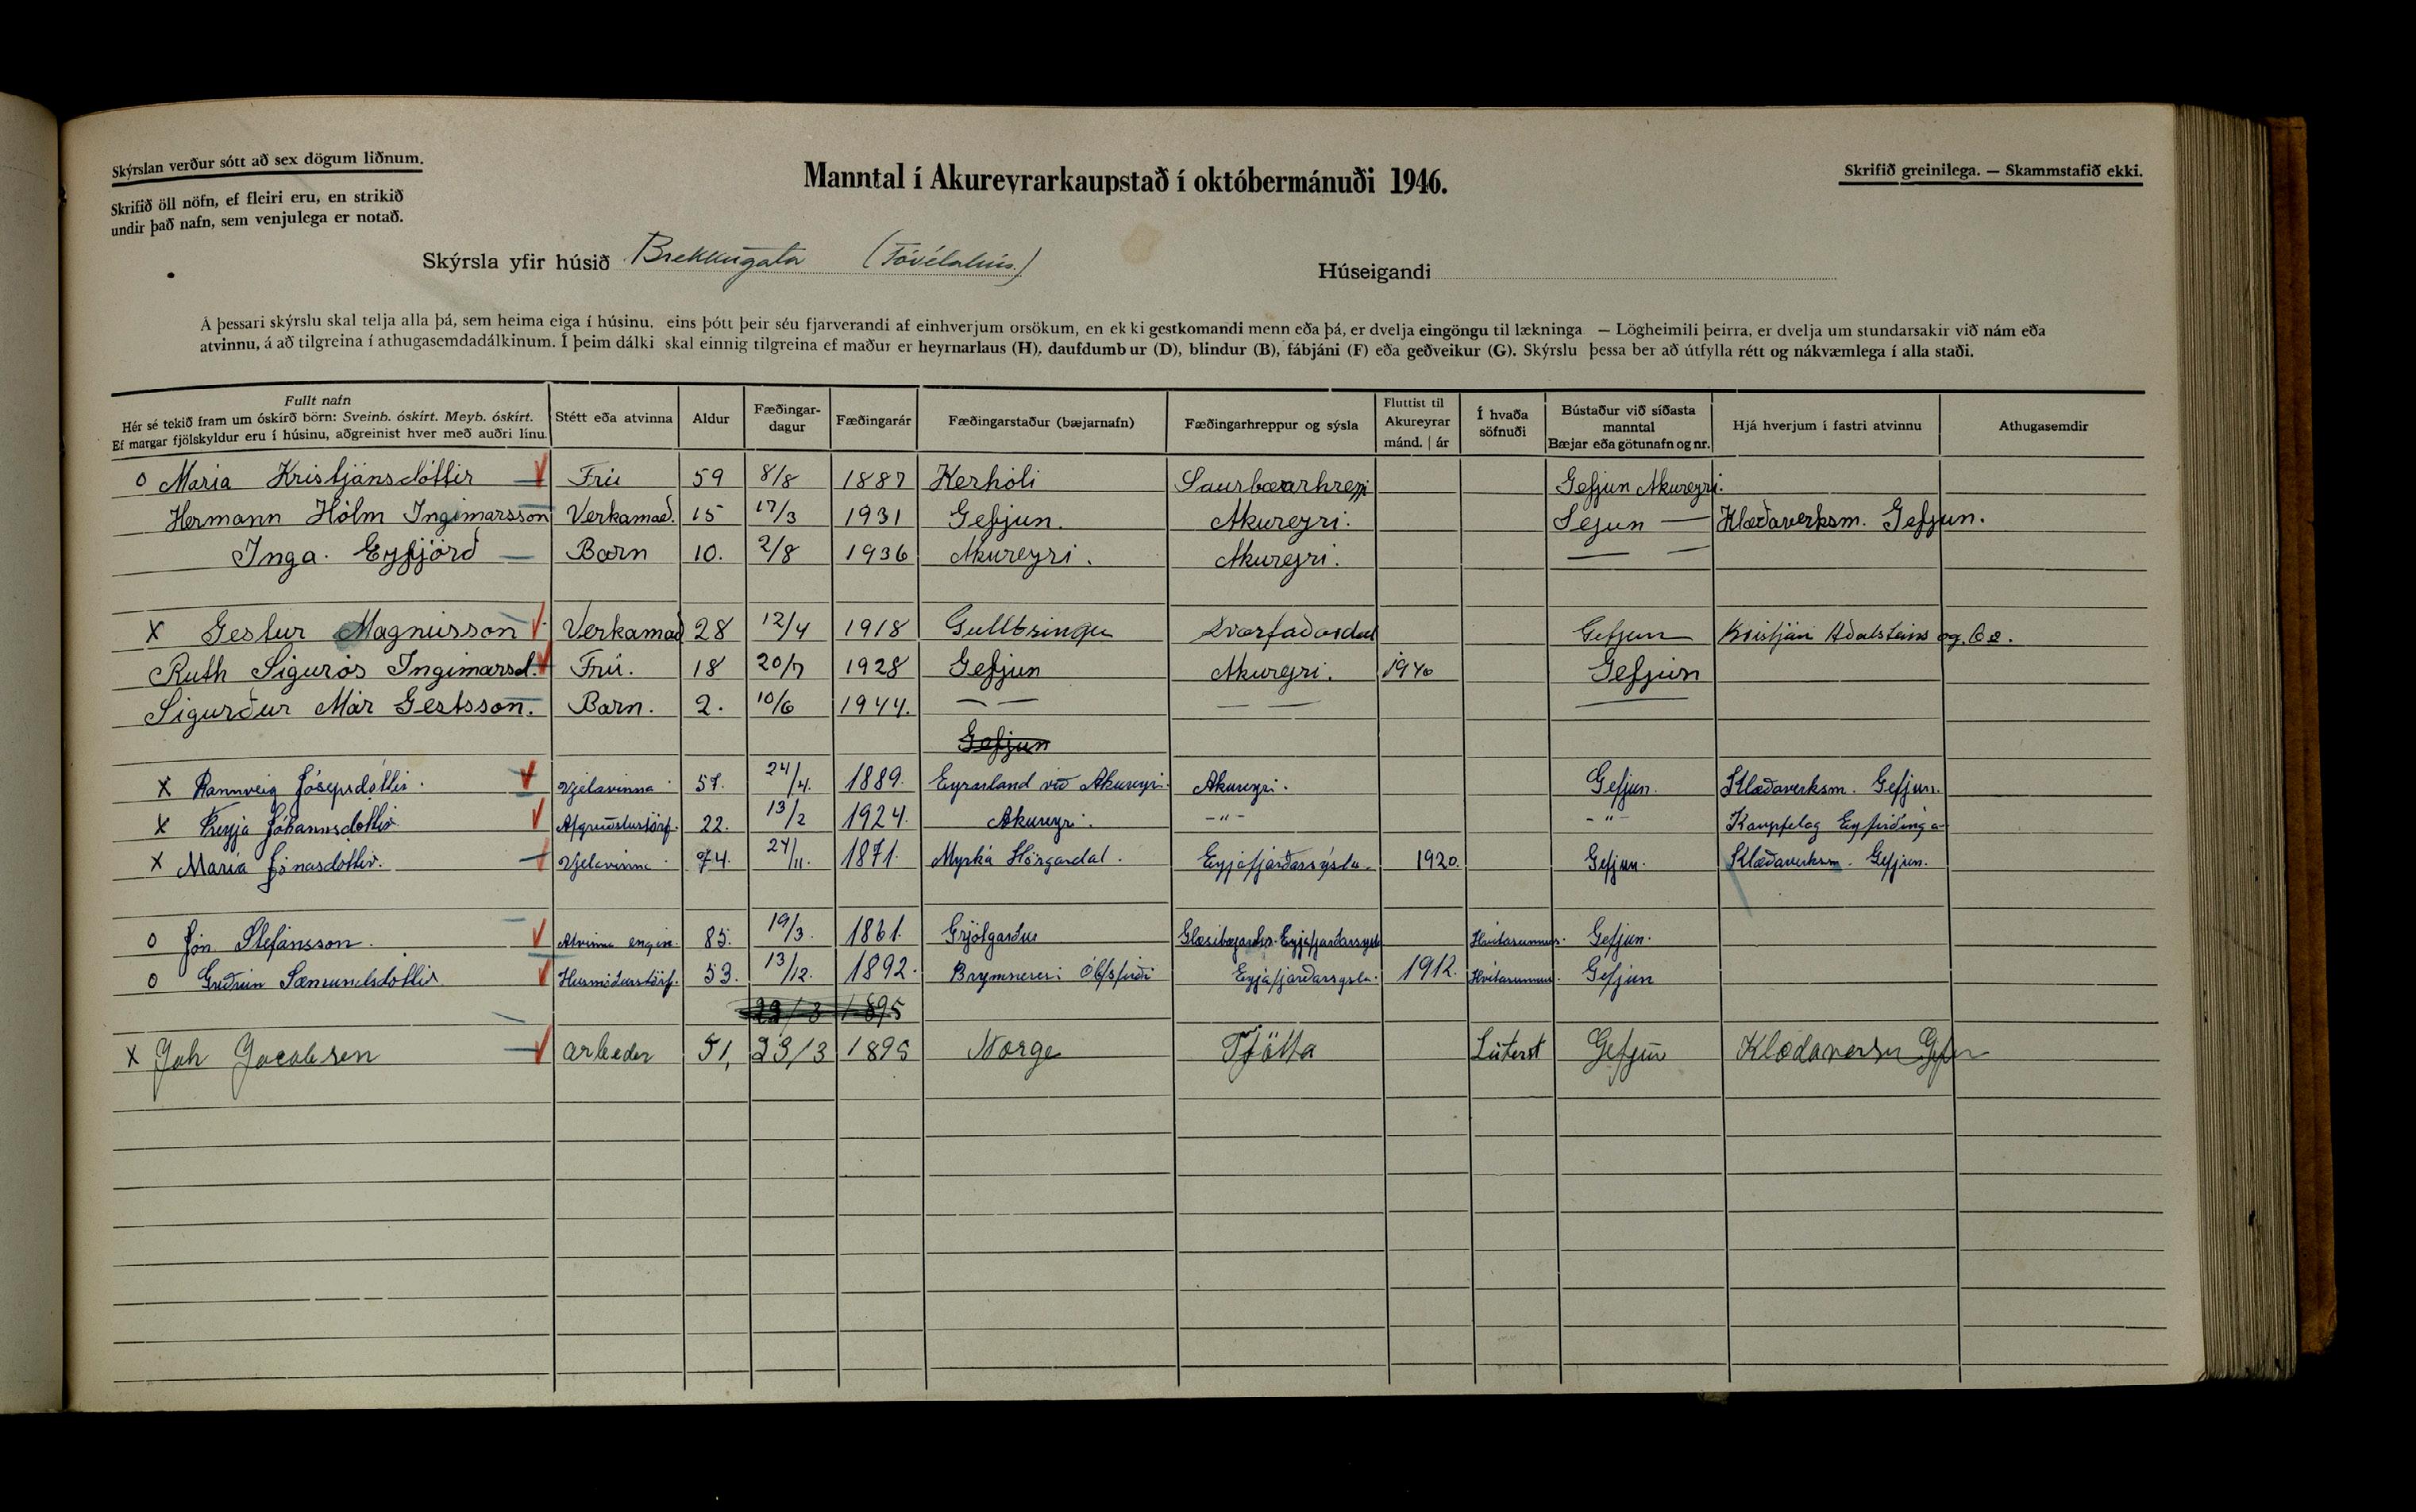 Skýrslan verður sótt að sex dögum liðnum.
Skrifið öll nöfn, ef fleiri eru, en strikið
undir það nafn, sem venjulega er notað.
Manntal í Akureyrarkaupstað í októbermánuði 1946.
Skrifið greinilega. — Skammstafið ekki.
Skýrsla yfir húsið Brekkugata (Tóvélahús.) Húseigandi
Á þessari skýrslu skal telja alla þá, sem heima eiga í húsinu, eins þótt þeir séu fjarverandi af einhverjum orsökum, en ekki gestkomandi menn eða þá, er dvelja eingöngu til lækninga — Lögheimili þeirra, er dvelja um stundarsakir við nám eða
atvinnu, á að tilgreina í athugasemdadálkinum. Í þeim dálki skal einnig tilgreina ef maður er heyrnarlaus (H), daufdumbur (D), blindur (B), fábjáni (F) eða geðveikur (G). Skýrslu þessa ber að útfylla rétt og nákvæmlega í alla staði.
Fullt nafn
Hér sé tekið fram um óskírð börn: Sveinb. óskírt. Meyb. óskírt.
Ef margar fjölskyldur eru í húsinu, aðgreinist hver með auðri línu.
Stétt eða atvinna
Aldur
Fæðingar-
dagur
Fæðingarár
Fæðingarstaður (bæjarnafn)
Fæðingarhreppur og sýsla
Fluttist til
Akureyrar
mánd. | ár
Í hvaða
söfnuði
Bústaður við síðasta
manntal
Bæjar eða götunafn og nr.
Hjá hverjum í fastri atvinnu
Athugasemdir
o Maria Kristjánsdóttir V Frú 59 8/8 1887 Kerhóli Saurbæarhreppi Gefjun Akureyri.
Hermann Hólm Ingimarsson Verkamað. 15 17/3 1931 Gefjun. Akureyri. Sejun — Klæðaverksm. Gefjun.
Inga. Eyfjörð Barn 10. 2/8 1936 Akureyri. Akureyri. — —
x Gestur Magnússon V Verkamað 28 12/4 1918 Gullbringu Svarfaðardal Gefjun Kristján Aðalsteins og. Co.
Ruth Sigurós Ingimarsd. V Frú. 18 20/7 1928 Gefjun Akureyri. 1940 Gefjun
Sigurður Már Gestsson. Barn. 2. 10/6 1944. — — — —
Gefjun
x Rannveig Jósepsdóttir. V Vjelavinna 57. 24/4. 1889. Eyrarland við Akureyri. Akureyri. Gefjun. Klæðaverksm. Gefjun.
x Freyja Jóhannsdóttir V Afgreiðslustörf. 22. 13/2 1924. Akureyri. - " - - " - Kaupfelag Eyfirðinga
x María Jónasdóttir. Vjelavinna 74. 24/11. 1871. Myrká Hörgardal. Eyjafjarðarsýsla. 1920. Gefjun. Klæðaverksm. Gefjun.
o Jón Stefánsson. V Atvinna engin. 85. 19/3. 1861. Grjótgarður Glæsibæjarhr. Eyjafjarðarsysla Hvítasunnus. Gefjun.
o Guðrún Sæmundsdóttir V Húsmóðurstörf. 53. 13/12. 1892. Brymnesi Ólfsfirði Eyjafjarðarsysla. 1912. Hvítasunnus. Gefjun
23/3 1895
x Joh Jacobsen V arbeder 51, 23/3 1895 Norge Tjötta Lüterst Gefjun